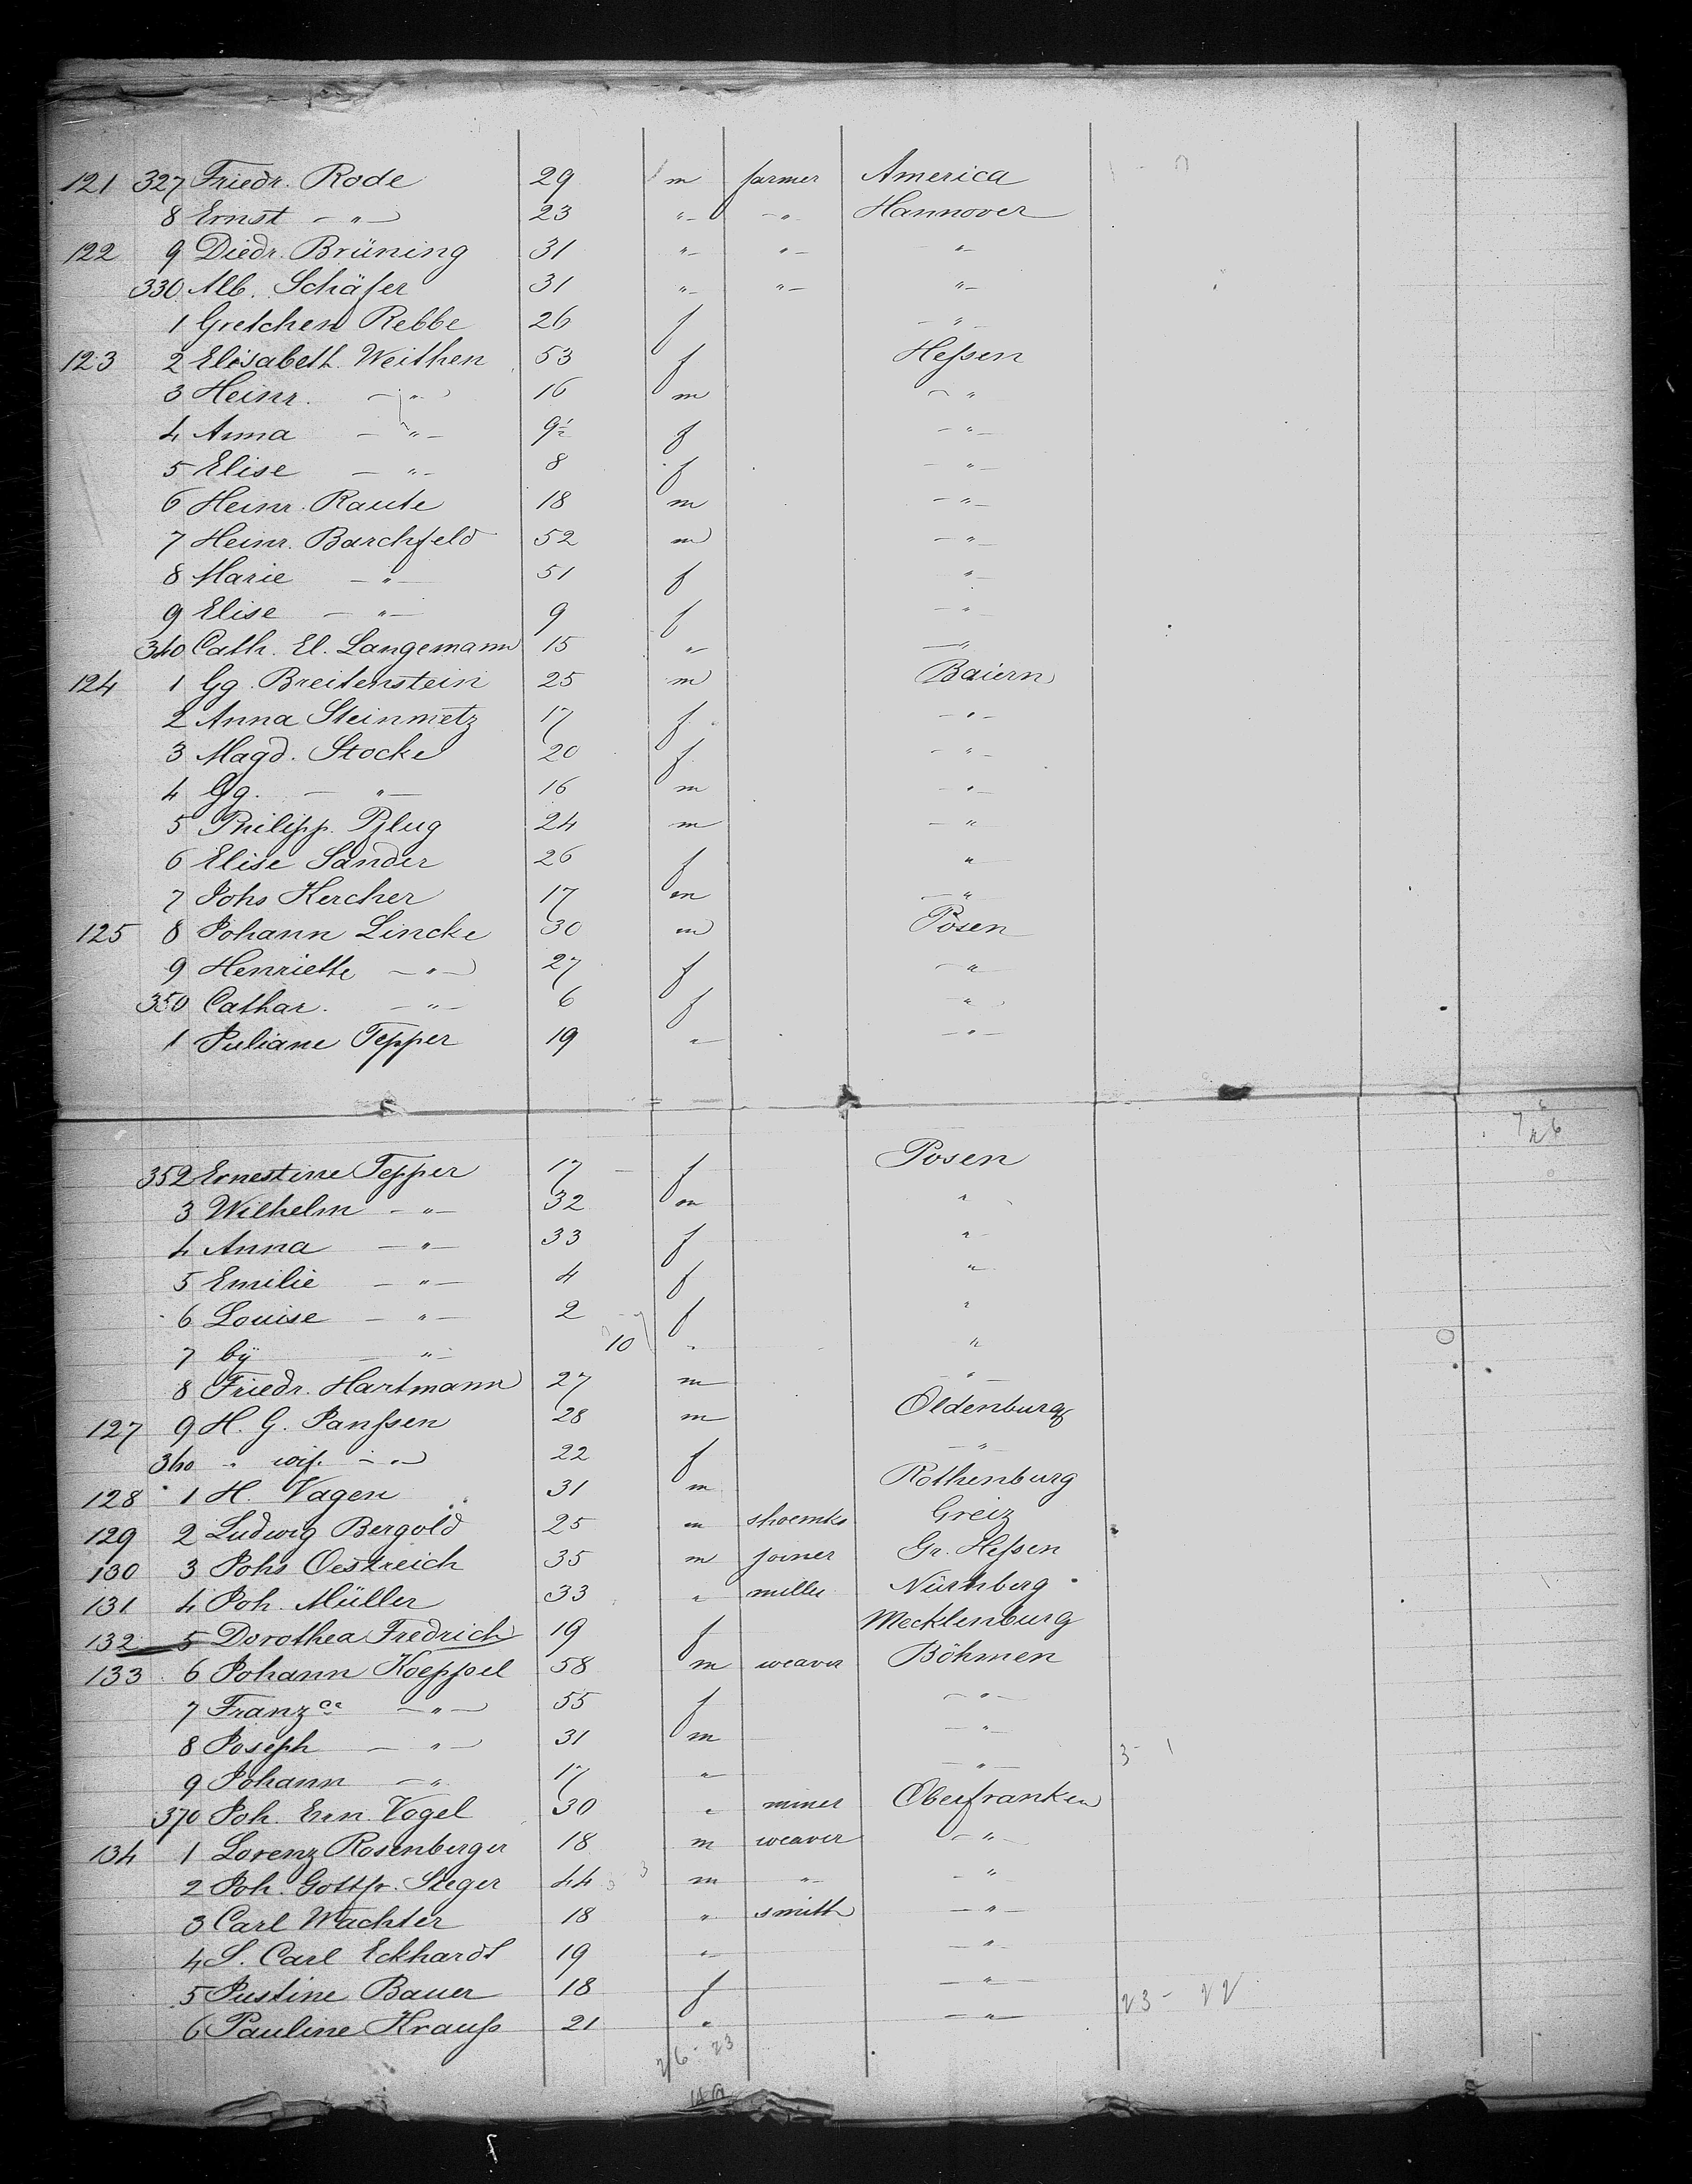 121 327 Friedr. Rode 29 m farmer America
8 Ernst - " - 23 " - - " Hannover
122 9 Diedr. Brüning 31 " - " - " -
330 Alb. Schäfer 31 " - " - " -
1 Gretchen Rebbe 26 f - " -
123 2 Elisabeth Weithen 53 f Heßen
3 Heinr. - " - 16 m - "
4 Anna - " - 9½ f - " -
5 Elise - " - 8 f - " -
6 Heinr. Raute 18 m - " -
7 Heinr. Barchfeld 52 m - " -
8 Marie - " - 51 f " -
9 Elise - " - 9 f - " -
340 Cath. El. Langemann 15 " - "
124 1 Gg. Breitenstein 25 m Baiern
2 Anna Steinmetz 17 f - " -
3 Magd. Stocke 20 f - " -
4 Gg. - " - 16 m - " -
5 Philipp Pflug 24 m - "
6 Elise Sander 26 f "
7 Johs Kercher 17 m - " -
125 8 Johann Lincke 30 m Posen
9 Henriette - " - 27 f - "
350 Cathar. - " - 6 f - " -
1 Juliane Tepper 19 " - " -
7/26
352 Ernestine Tepper 17 f Posen
3 Wilhelm - " - 32 m "
4 Anna - " - 33 f " -
5 Emilie - " - 4 f "
6 Louise - " - 2 f "
7 by - " - 10 " "
8 Friedr. Hartmann 27 m - " -
127 9 H. G. Janßen 28 m Oldenburg
360 " wife - " - 22 f - " -
128 1 H. Vagen 31 m Rothenburg
129 2 Ludwig Bergold 25 m shoemkr Greiz
130 3 Johs Oestreich 35 m joiner Gr. Heßen
131 4 Joh. Müller 33 " miller Nürnberg
132 5 Dorothea Fredrich 19 f Mecklenburg
133 6 Johann Koeppel 58 m weaver Böhmen
7 Franzca - " - 55 f - " -
8 Joseph - " - 31 m - " -
9 Johann - " 17 " - " - 3 - 1
370 Joh. Ern. Vogel 30 " miner Oberfranken
134 1 Lorenz Rosenberger 18 m weaver - " -
2 Joh. Gottfr. Steger 44 m " - - "
3 Carl Wachter 18 " smith - " -
4 S. Carl Eckhardt 19 " - " -
5 Justine Bauer 18 f - " -
6 Pauline Krauß 21 " - " - 23 - 22
26 - 23